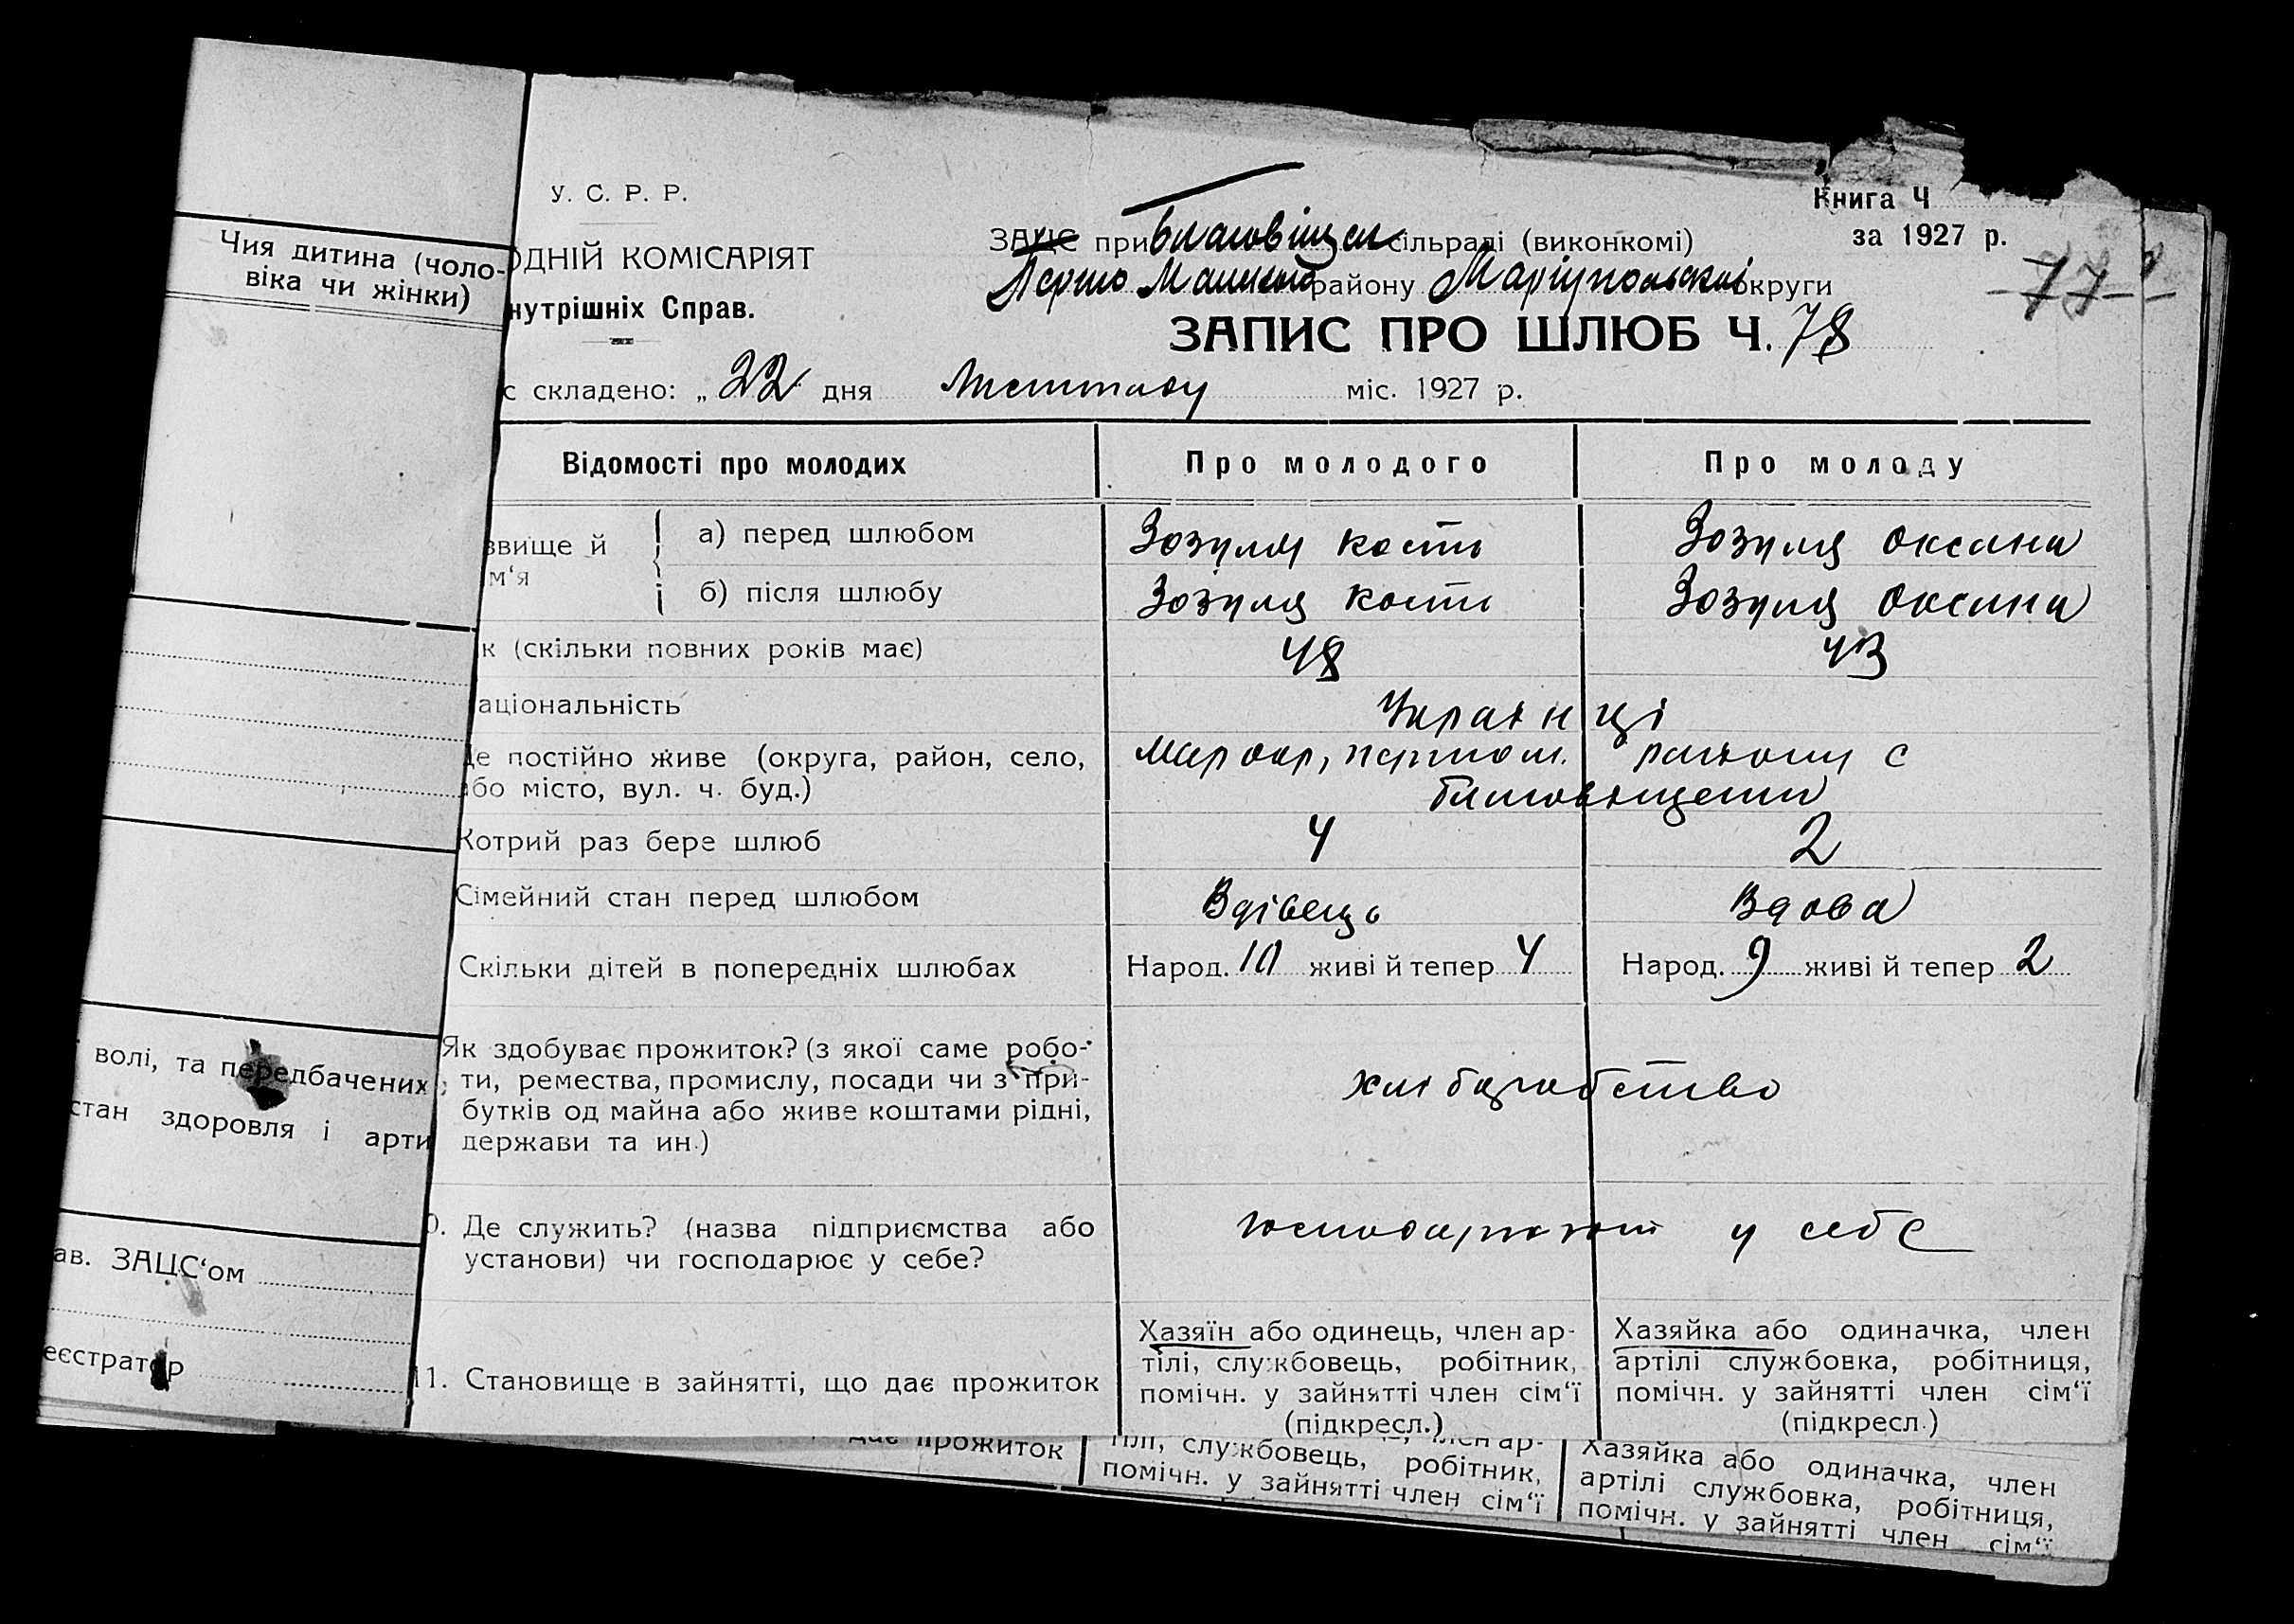 Чия дитина (чоло-
віка чи жінки)
волі, та передбачених
стан здоровля і арти
ав. ЗАЦС‘ом
еєстратор
У. С. Р. Р.
ОДНІЙ КОМІСАРІЯТ
нутрішніх Справ.
Книга Ч
за 1927 р.
-77-
ЗАЦС при Благовіщен сільраді (виконкомі)
Першо району Маріупольської округи
ЗАПИС ПРО ШЛЮБ Ч. 78
с складено: „ 22 " дня Листопаду міс. 1927 р.
Відомості про молодих Про молодого Про молоду
звище й
м‘я
а) перед шлюбом Зозуля Кость Зозуля Оксана
б) після шлюбу Зозуля Кость Зозуля Оксана
к (скільки повних років має) 48 43
аціональність Українці
Де постійно живе (округа, район, село, Мар окр, першом. району с
або місто, вул. ч. буд.) Благовіщення
Котрий раз бере шлюб 4 2
Сімейний стан перед шлюбом Вдівець Вдова
Скільки дітей в попередніх шлюбах Народ. 10 живі й тепер 4 Народ. 9 живі й тепер 2
Як здобуває прожиток? (з якої саме робо-
ти, ремества, промислу, посади чи з при-
бутків од майна або живе коштами рідні,
держави та ин.)
хліборобство
0. Де служить? (назва підприємства або
установи) чи господарює у себе?
господарюють у себе
11. Становище в зайнятті, що дає прожиток
Хазяїн або одинець, член ар-
тілі, службовець, робітник,
помічн. у зайнятті член сім‘ї
(підкресл.)
Хазяйка або одиначка, член
артілі службовка, робітниця,
помічн. у зайнятті член сім‘ї
(підкресл.)
дає прожиток
тілі, службовець, робітник,
помічн. у зайнятті член сім‘ї
Хазяйка або одиначка, член
артілі службовка, робітниця,
помічн. у зайнятті член сім‘ї